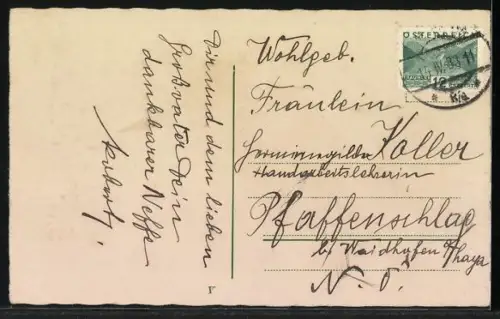 Dir und dem lieben
Großvater Dein
dankbarer Neffe
ÖSTERREICH
Wohlgeb.
Fräulein
Herminegilde Koller
Handarbeitslehrerin
Pfaffenschlag
bei Waidhofen a/Thaya
N. Ö.